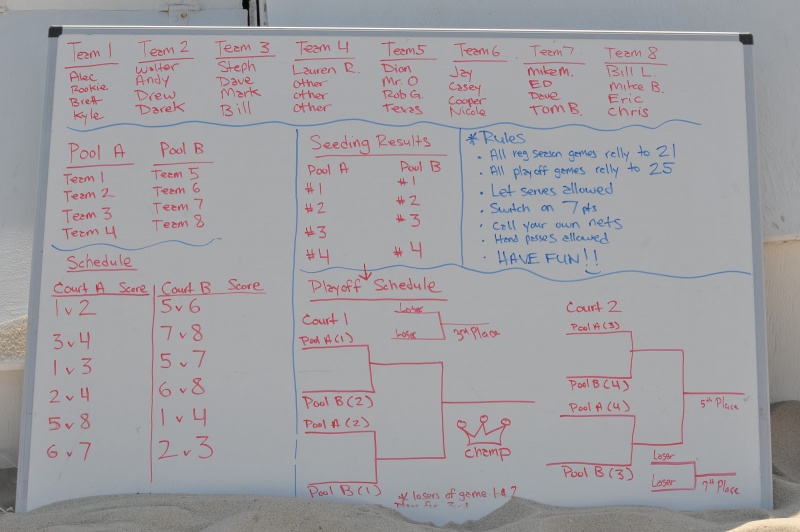 Team 1 Team 2 Team 3 Team 4 Team5 Team6 Team7 Team 8
Alec Walter Steph Lauren R. Dion Jay mike m. Bill L.
Rookie Andy Dave other Mr. O Casey ED Mike B.
Brett Drew Mark other Rob G. Cooper Dave Eric
Kyle Darek Bill other Texas Nicole Tom B. Chris
Pool A Pool B
Team 1 Team 5
Team 2 Team 6
Team 3 Team 7
Team 4 Team 8
Seeding Results
Pool A Pool B
#1 #1
#2 #2
#3 #3
#4 #4
* Rules
• All reg season games relly to 21
• All playoff games relly to 25
• Let serves allowed
• Switch on 7 pts
• Call your own nets
• Hand passes allowed
• HAVE FUN!!
Schedule
Court A Score Court B Score
1 v 2 5 v 6
3 v 4 7 v 8
1 v 3 5 v 7
2 v 4 6 v 8
5 v 8 1 v 4
6 v 7 2 v 3
Playoff Schedule
Court 1
Loser
Loser
3rd Place
Pool A (1)
Pool B (2)
Pool A (2)
Pool B (1)
champ
* losers of game 1 & 2
Court 2
Pool A (3)
Pool B (4)
Pool A (4)
Pool B (3)
5th Place
Loser
Loser
7th Place